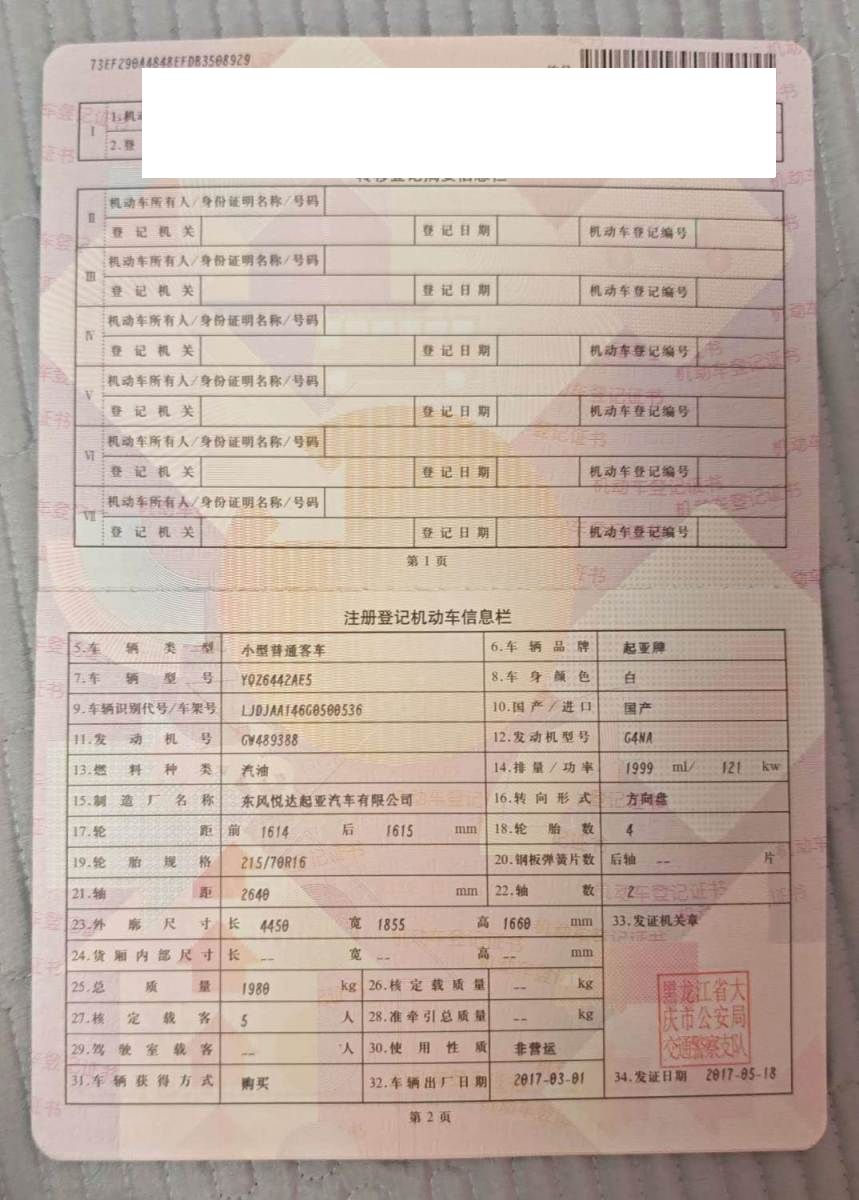 73EF290A4848EFDB3508929
I
1.机动
2.登
转移登记摘要信息栏
II 机动车所有人/身份证明名称/号码
登记机关 登记日期 机动车登记编号
III 机动车所有人/身份证明名称/号码
登记机关 登记日期 机动车登记编号
IV 机动车所有人/身份证明名称/号码
登记机关 登记日期 机动车登记编号
V 机动车所有人/身份证明名称/号码
登记机关 登记日期 机动车登记编号
VI 机动车所有人/身份证明名称/号码
登记机关 登记日期 机动车登记编号
VII 机动车所有人/身份证明名称/号码
登记机关 登记日期 机动车登记编号
第1页
注册登记机动车信息栏
5.车辆类型 小型普通客车 6.车辆品牌 起亚牌
7.车辆型号 YQZ6442AE5 8.车身颜色 白
9.车辆识别代号/车架号 LJDJAA146G0500536 10.国产/进口 国产
11.发动机号 GW489388 12.发动机型号 G4NA
13.燃料种类 汽油 14.排量/功率 1999 ml/ 121 kw
15.制造厂名称 东风悦达起亚汽车有限公司 16.转向形式 方向盘
17.轮距 前 1614 后 1615 mm 18.轮胎数 4
19.轮胎规格 215/70R16 20.钢板弹簧片数 后轴 -- 片
21.轴距 2640 mm 22.轴数 2
23.外廓尺寸 长 4450 宽 1855 高 1660 mm 33.发证机关章
24.货厢内部尺寸 长 -- 宽 -- 高 -- mm
25.总质量 1980 kg 26.核定载质量 -- kg
27.核定载客 5 人 28.准牵引总质量 -- kg
29.驾驶室载客 -- 人 30.使用性质 非营运
31.车辆获得方式 购买 32.车辆出厂日期 2017-03-01 34.发证日期 2017-05-18
黑龙江省大
庆市公安局
交通警察支队
第2页